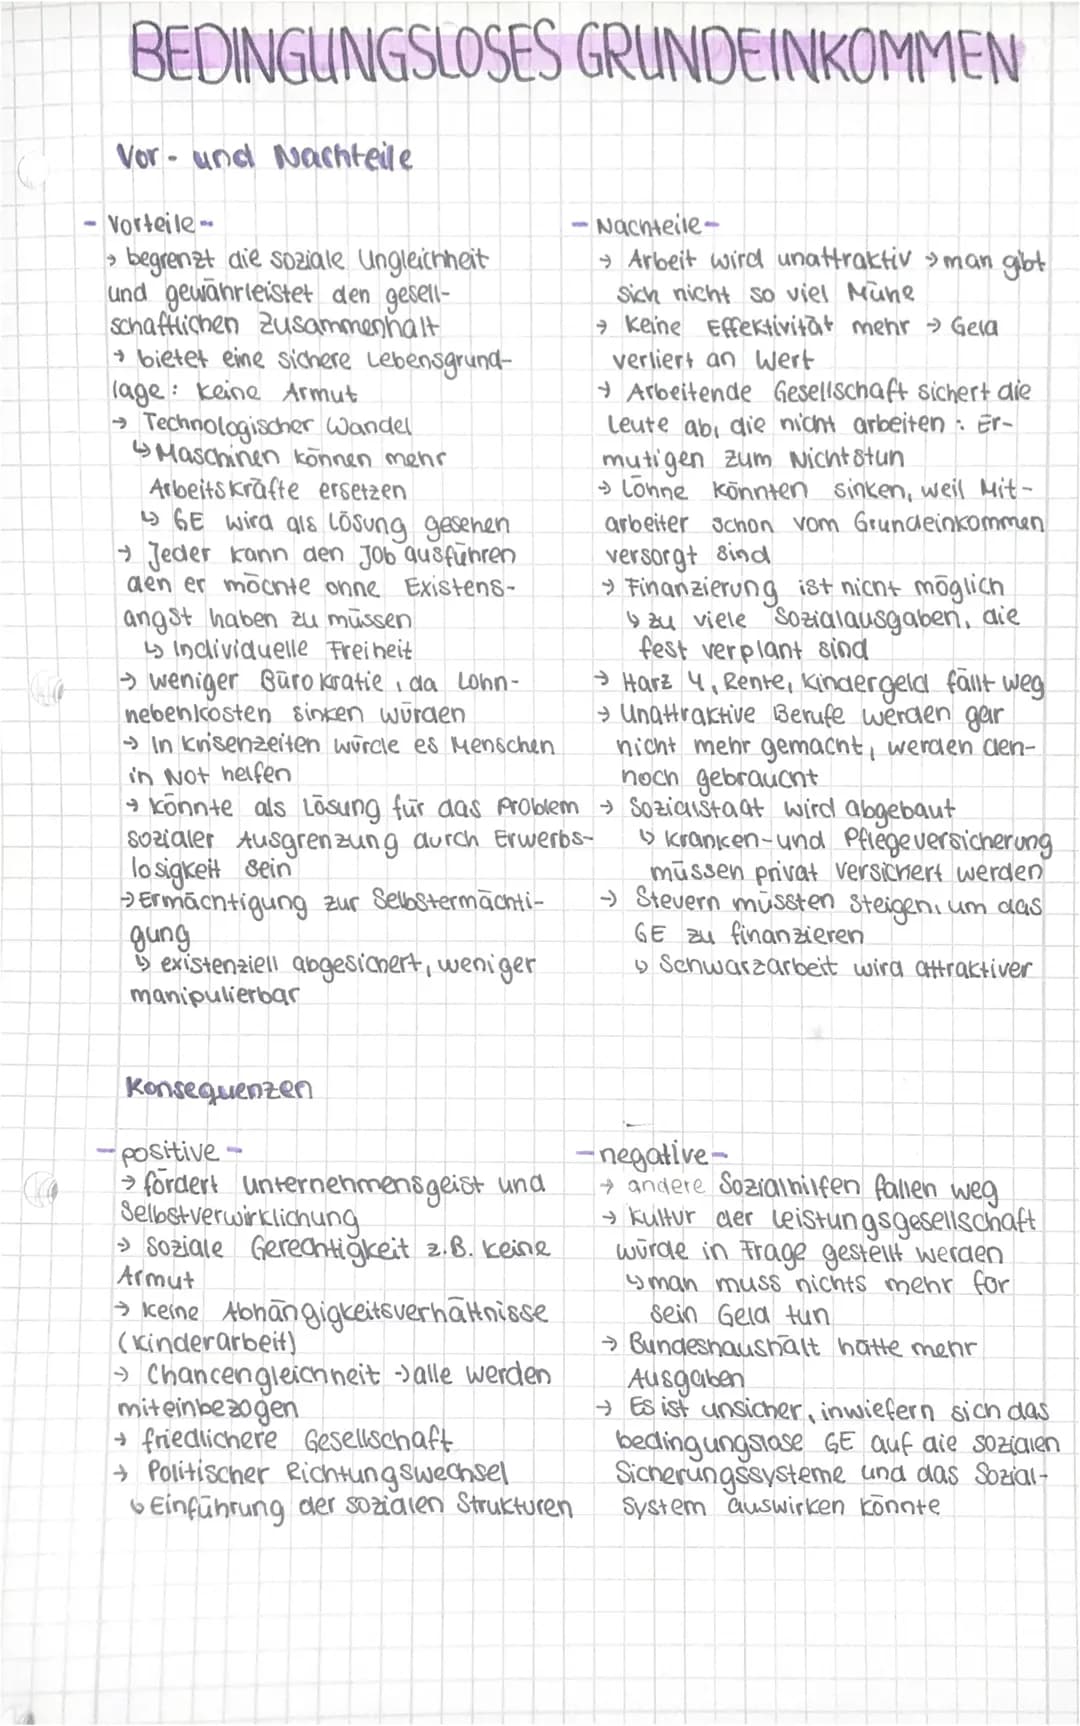 BEDINGUNGSLOSES GRUNDEINKOMMEN
Vor- und Nachteile
- Vorteile -
→ begrenzt die soziale Ungleichheit
und gewährleistet den gesell-
schaftlichen Zusammenhalt
→ bietet eine sichere Lebensgrund-
lage: keine Armut
→ Technologischer Wandel
↳ Maschinen können mehr
Arbeitskräfte ersetzen
↳ GE wird als Lösung gesehen
→ Jeder kann den Job ausführen
den er möchte ohne Existens-
angst haben zu müssen
↳ Individuelle Freiheit
→ weniger Bürokratie, da Lohn-
nebenkosten sinken würden
→ In Krisenzeiten würde es Menschen
in Not helfen
→ könnte als Lösung für das Problem
sozialer Ausgrenzung durch Erwerbs-
losigkeit sein
→ Ermächtigung zur Selbstermächti-
gung
↳ existenziell abgesichert, weniger
manipulierbar
- Nachteile -
→ Arbeit wird unattraktiv → man gibt
sich nicht so viel Mühe
→ Keine Effektivität mehr → Geld
verliert an Wert
→ Arbeitende Gesellschaft sichert die
Leute ab, die nicht arbeiten: Er-
mutigen zum Nichtstun
→ Löhne könnten sinken, weil Mit-
arbeiter schon vom Grundeinkommen
versorgt sind
→ Finanzierung ist nicht möglich
↳ zu viele Sozialausgaben, die
fest verplant sind
→ Harz 4, Rente, Kindergeld fällt weg
→ Unattraktive Berufe werden gar
nicht mehr gemacht, werden den-
noch gebraucht
→ Sozialstaat wird abgebaut
↳ Kranken- und Pflegeversicherung
müssen privat versichert werden
→ Steuern müssten steigen, um das
GE zu finanzieren
↳ Schwarzarbeit wird attraktiver
Konsequenzen
- positive -
→ fördert unternehmensgeist und
Selbstverwirklichung
→ Soziale Gerechtigkeit z.B. keine
Armut
→ keine Abhängigkeitsverhältnisse
(Kinderarbeit)
→ Chancengleichheit → alle werden
miteinbezogen
→ friedlichere Gesellschaft
→ Politischer Richtungswechsel
↳ Einführung der sozialen Strukturen
- negative -
→ andere Sozialhilfen fallen weg
→ Kultur der Leistungsgesellschaft
würde in Frage gestellt werden
↳ man muss nichts mehr for
sein Geld tun
→ Bundeshaushalt hätte mehr
Ausgaben
→ Es ist unsicher, inwiefern sich das
bedingungslose GE auf die sozialen
Sicherungssysteme und das Sozial-
system auswirken könnte